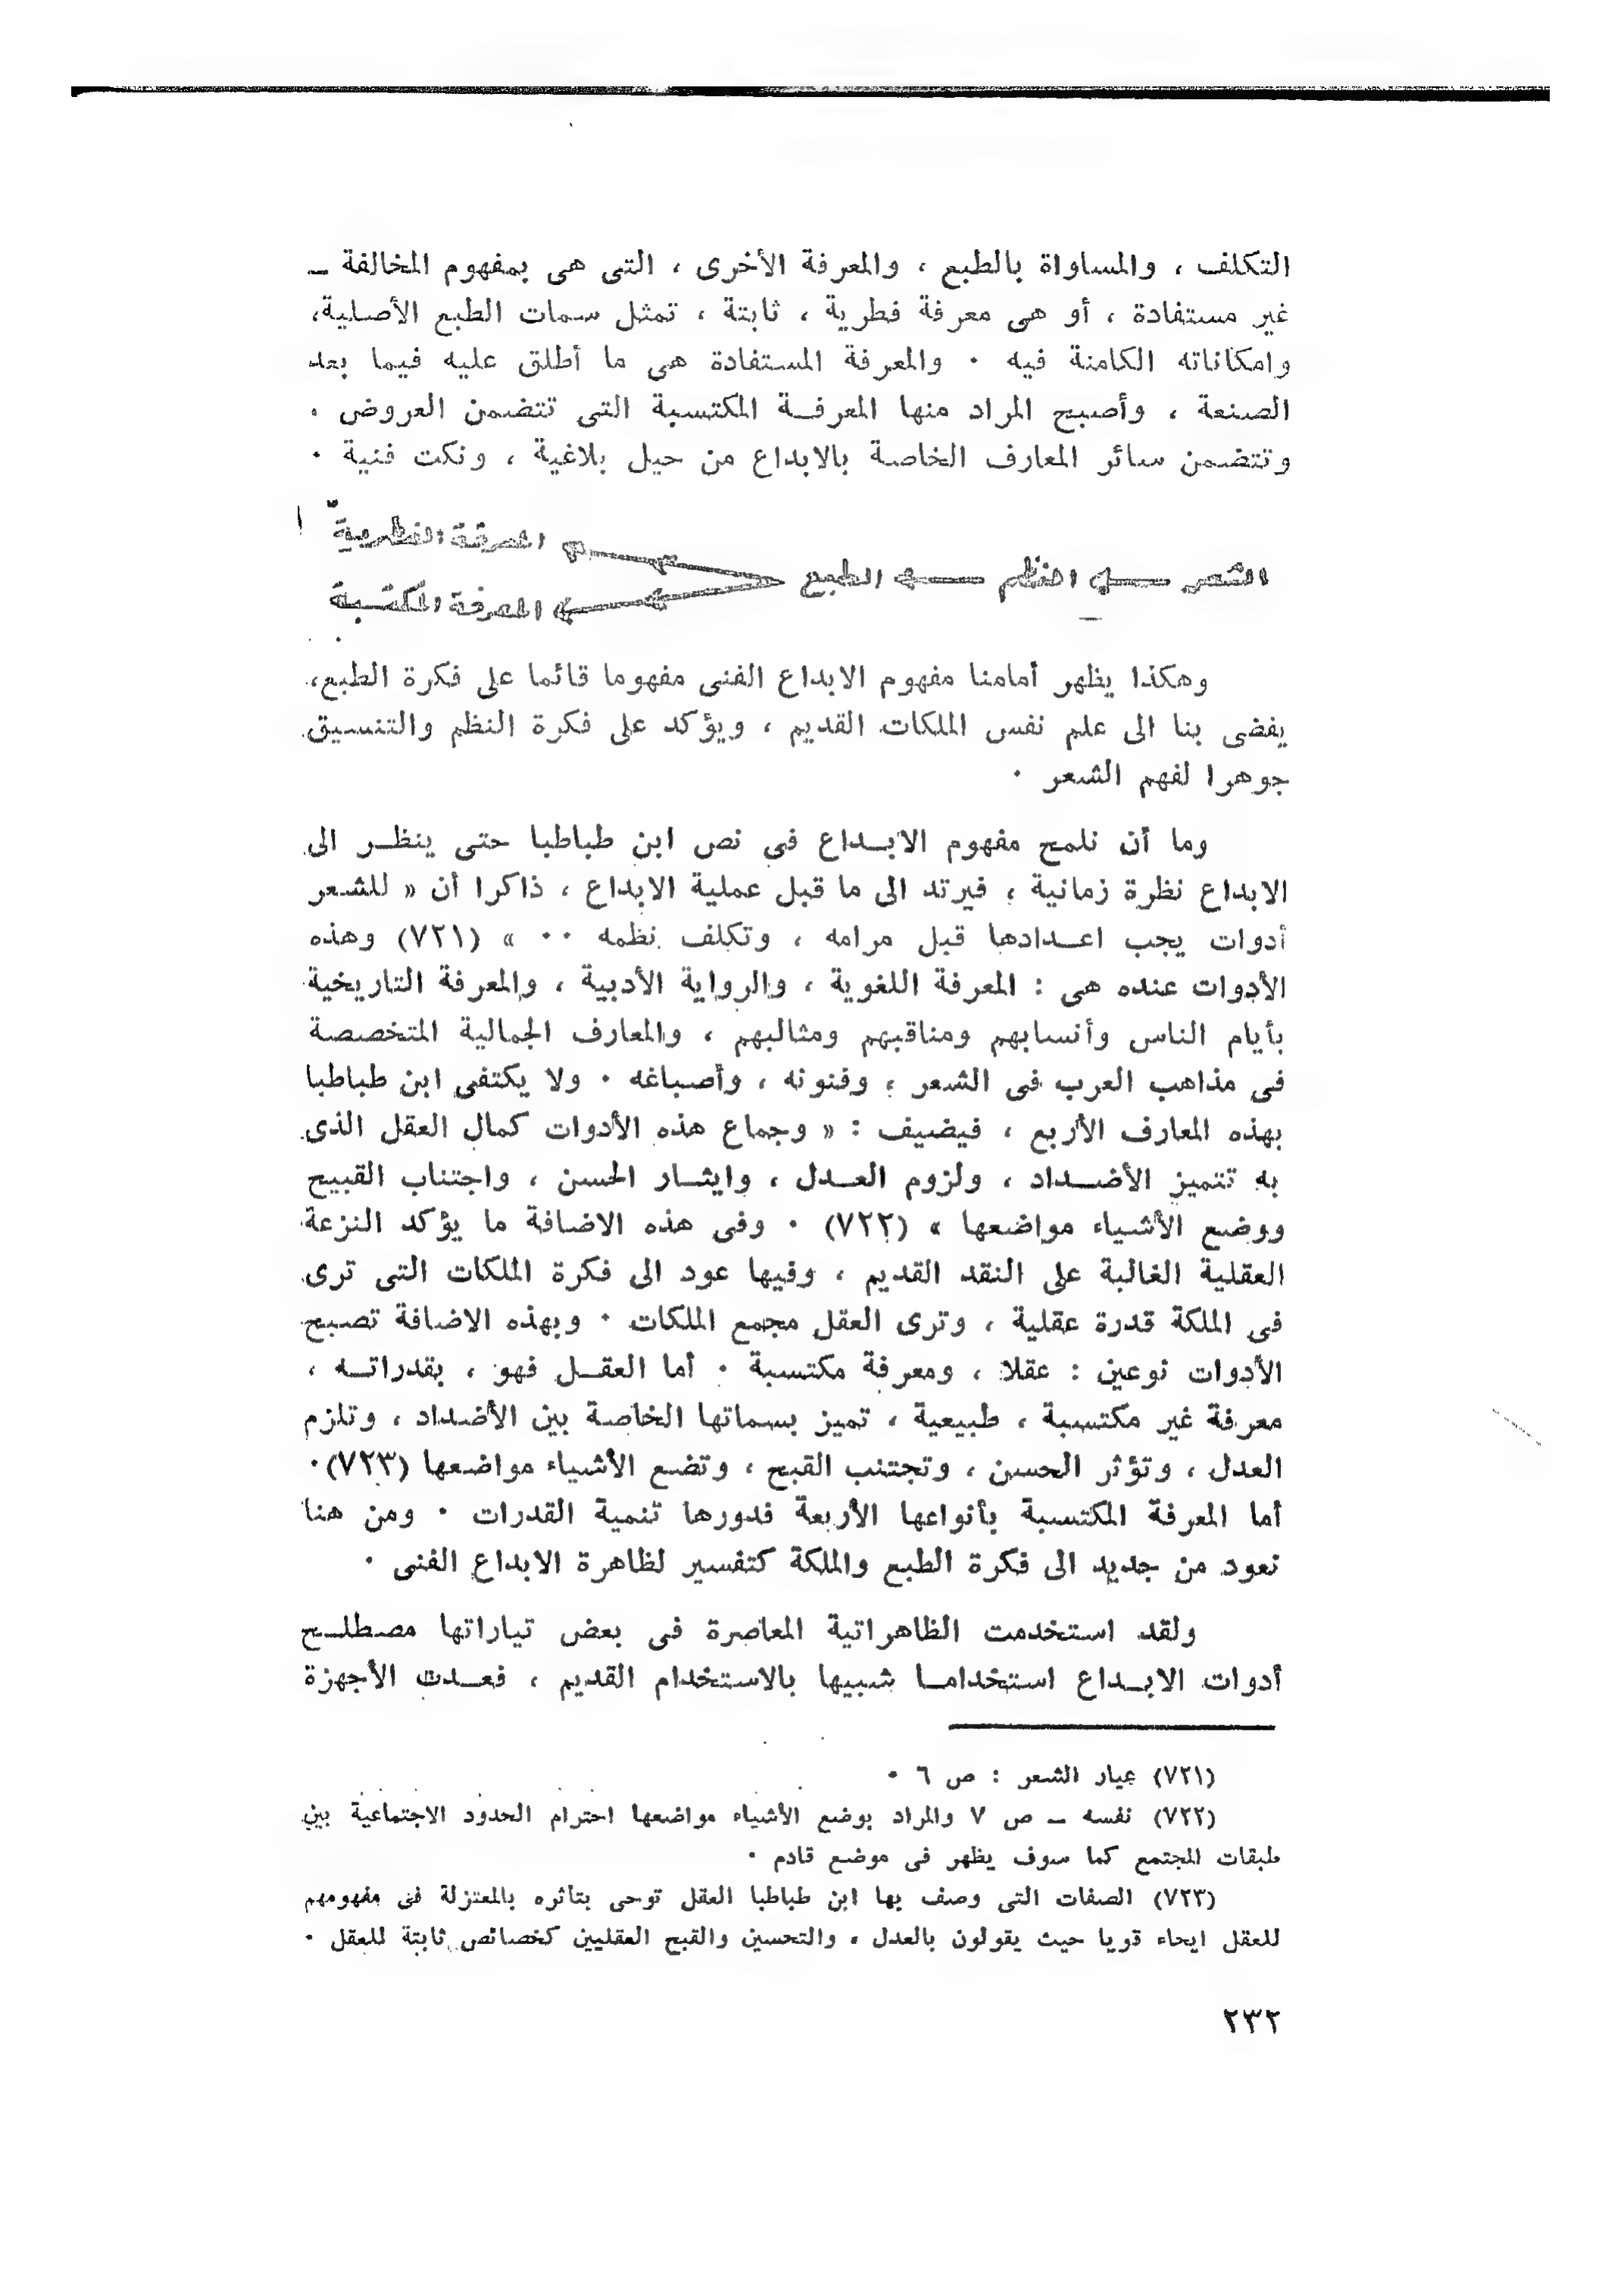 التكلف ، والمساواة بالطبع ، والمعرفة الأخرى ، التى هى بمفهوم المخالفة ــ
غير مستفادة ، أو هى معرفة فطرية ، ثابتة ، تمثل سمات الطبع الأصلية،
وامكاناته الكامنة فيه ٠ والمعرفة المستفادة هى ما أطلق عليه فيما بعد
الصنعة ، وأصبح المراد منها المعرفــة المكتسبة التى تتضمن العروض ،
وتتضمن سائر المعارف الخاصة بالابداع من حيل بلاغية ، ونكت فنية ٠
المعرفة الفطرية
الشعر ← النظم ← الطبع
المعرفة المكتسبة
وهكذا يظهر أمامنا مفهوم الابداع الفنى مفهوما قائما على فكرة الطبع،
يفضى بنا الى علم نفس الملكات القديم ، ويؤكد على فكرة النظم والتنسيق
جوهرا لفهم الشعر ٠
وما أن نلمح مفهوم الابــداع فى نص ابن طباطبا حتى ينظــر الى
الابداع نظرة زمانية ، فيرتد الى ما قبل عملية الابداع ، ذاكرا أن « للشعر
أدوات يجب اعــدادها قبل مرامه ، وتكلف نظمه ٠٠ » (٧٢١) وهذه
الأدوات عنده هى : المعرفة اللغوية ، والرواية الأدبية ، والمعرفة التاريخية
بأيام الناس وأنسابهم ومناقبهم ومثالبهم ، والمعارف الجمالية المتخصصة
فى مذاهب العرب فى الشعر ، وفنونه ، وأصباغه ٠ ولا يكتفى ابن طباطبا
بهذه المعارف الأربع ، فيضيف : « وجماع هذه الأدوات كمال العقل الذى
به تتميز الأضــداد ، ولزوم العــدل ، وايثــار الحسن ، واجتناب القبيح
ووضع الأشياء مواضعها » (٧٢٢) ٠ وفى هذه الاضافة ما يؤكد النزعة
العقلية الغالبة على النقد القديم ، وفيها عود الى فكرة الملكات التى ترى
فى الملكة قدرة عقلية ، وترى العقل مجمع الملكات ٠ وبهذه الاضافة تصبح
الأدوات نوعين : عقلا ، ومعرفة مكتسبة ٠ أما العقــل فهو ، بقدراتــه ،
معرفة غير مكتسبة ، طبيعية ، تميز بسماتها الخاصة بين الأضداد ، وتلزم
العدل ، وتؤثر الحسن ، وتجتنب القبح ، وتضع الأشياء مواضعها (٧٢٣)٠
أما المعرفة المكتسبة بأنواعها الأربعة فدورها تنمية القدرات ٠ ومن هنا
نعود من جديد الى فكرة الطبع والملكة كتفسير لظاهرة الابداع الفنى ٠
ولقد استخدمت الظاهراتية المعاصرة فى بعض تياراتها مصطلــح
أدوات الابــداع استخدامــا شبيها بالاستخدام القديم ، فعــدت الأجهزة
(٧٢١) عيار الشعر : ص ٦ ٠
(٧٢٢) نفسه ــ ص ٧ والمراد بوضع الأشياء مواضعها احترام الحدود الاجتماعية بين
طبقات المجتمع كما سوف يظهر فى موضع قادم ٠
(٧٢٣) الصفات التى وصف بها ابن طباطبا العقل توحى بتأثره بالمعتزلة فى مفهومهم
للعقل ايحاء قويا حيث يقولون بالعدل ، والتحسين والقبح العقليين كخصائص ثابتة للعقل ٠
٢٣٢